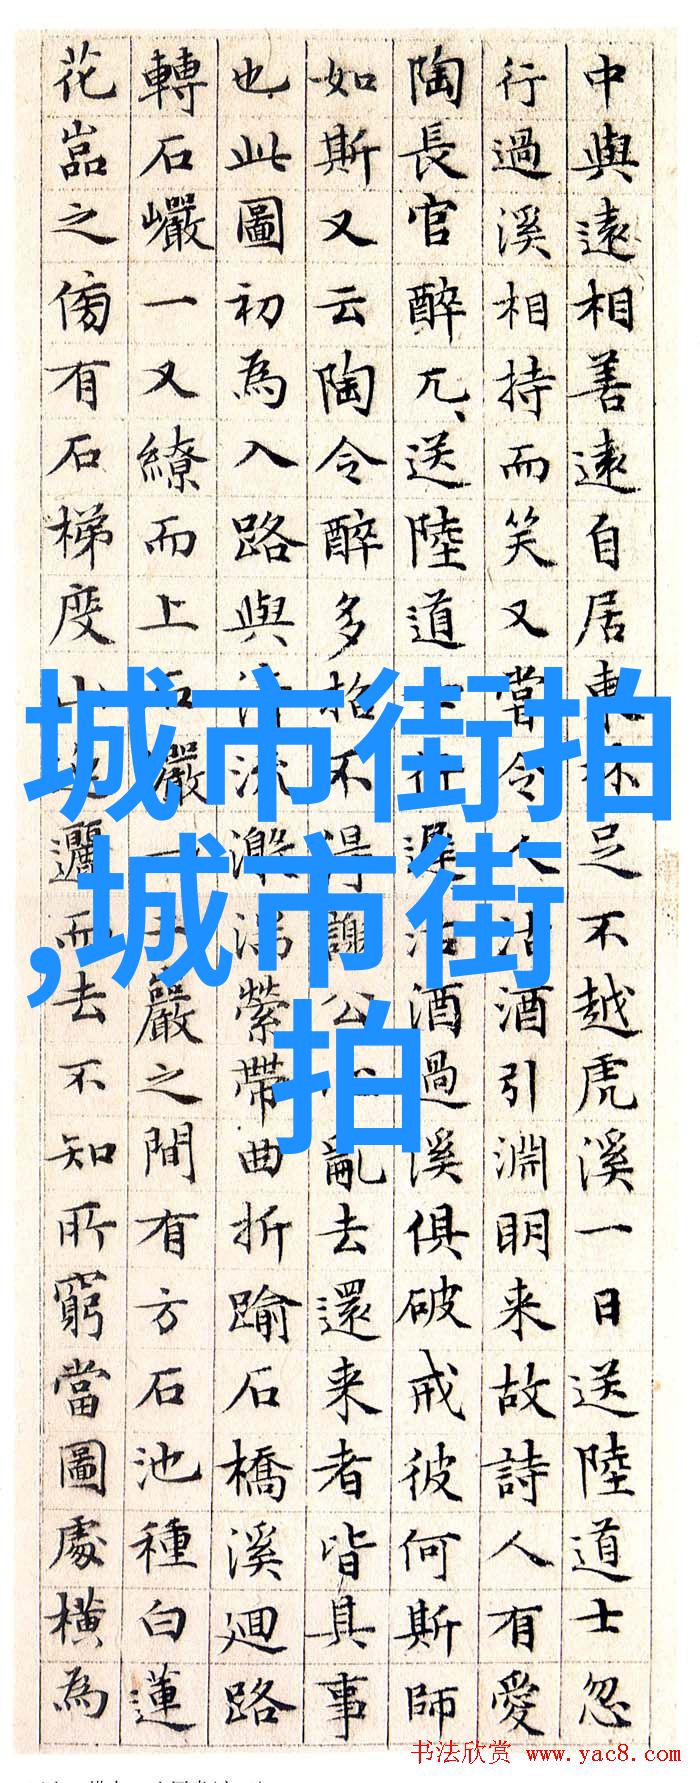 中與遠相善遠自居東林足不越虎溪一日送陸道士忽
行過溪相持而笑又嘗令人沽酒引淵明来故詩人有愛
陶長官醉兀、送陸道士行遲沽酒過溪俱破戒彼何斯師
如斯又云陶令醉多招不得謝公心亂去還来者皆其事
也此圖初為入路與清流激湍縈帶曲折踰石橋溪迴路
轉石巖一又繚而上石巖一巖之間有方石池種白蓮
花嵓之傍有石梯度山迤邐而去不知所窮當圖處横為
城市街拍
,城市街
拍
书法欣赏 www.yac8.com